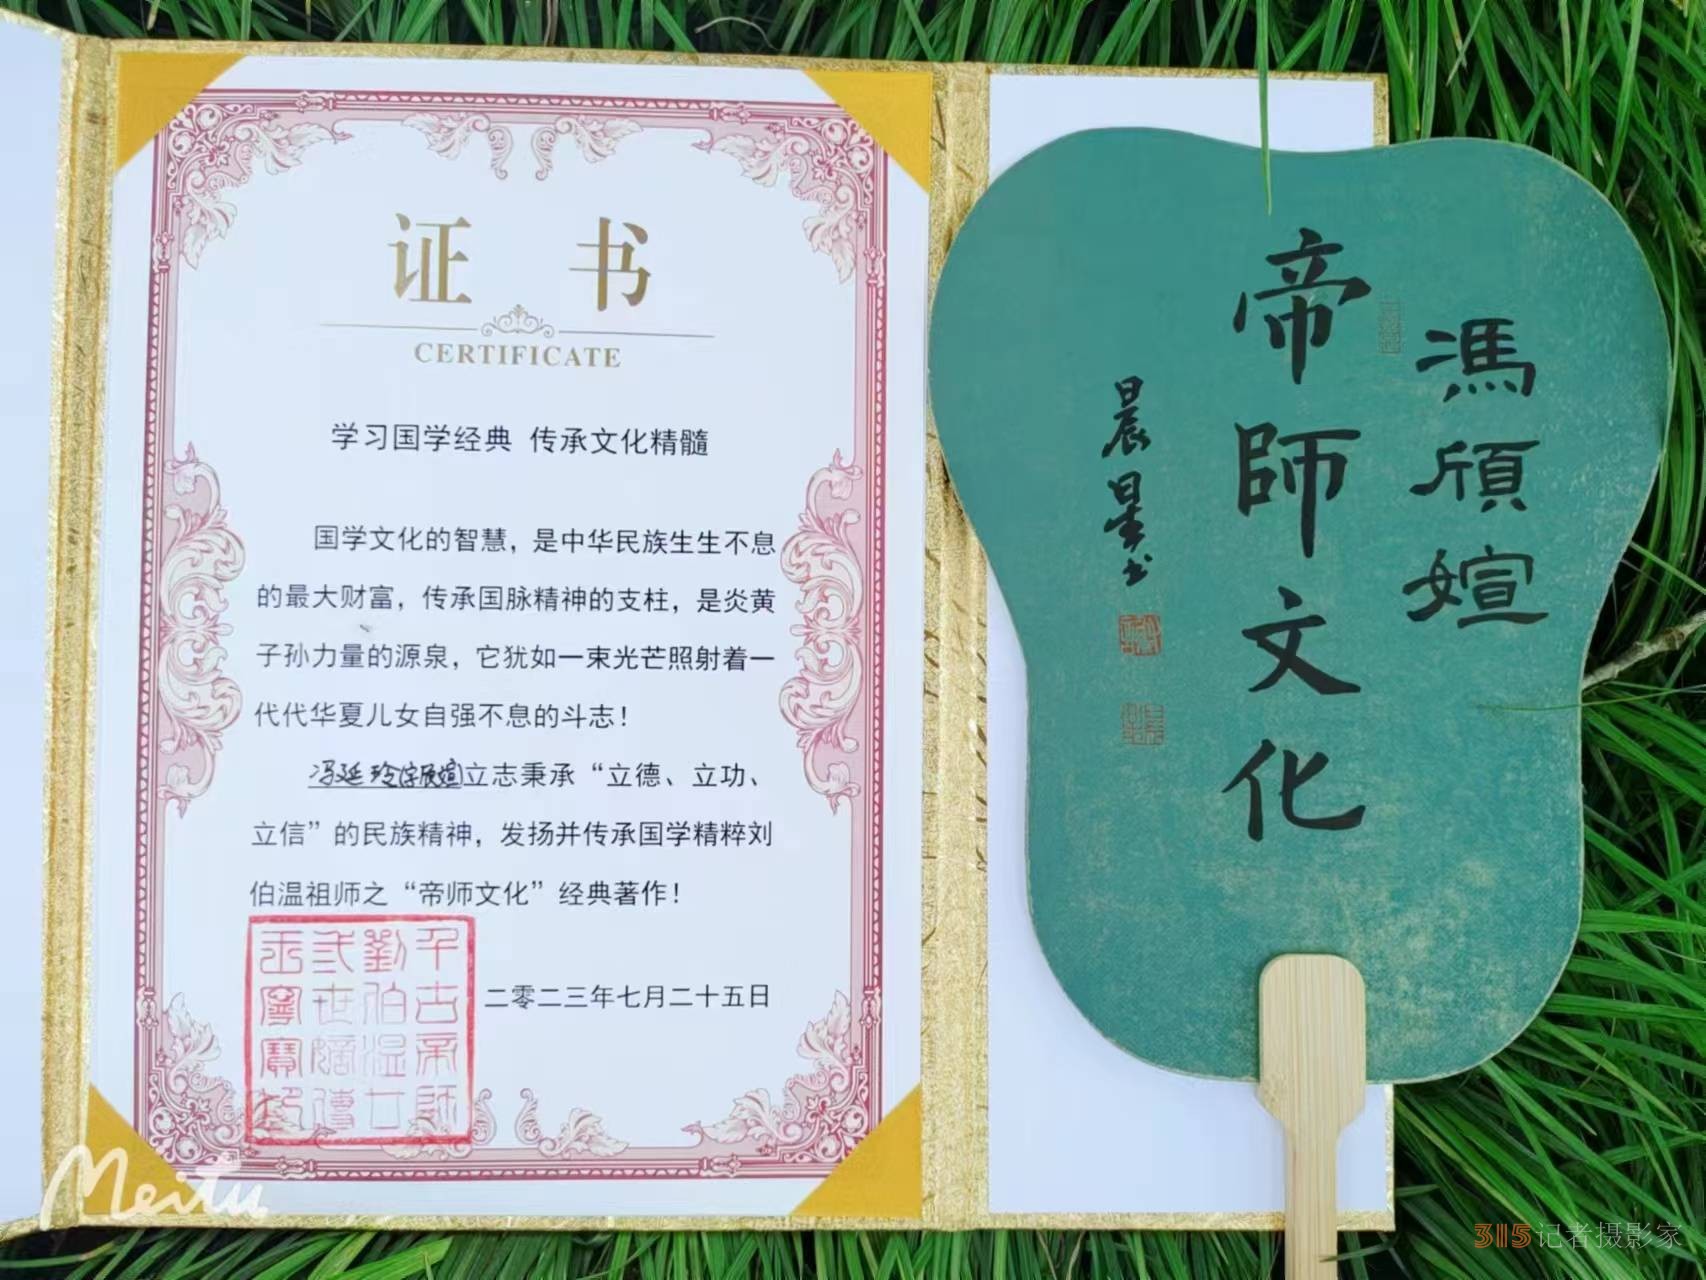 证 书
CERTIFICATE
学习国学经典 传承文化精髓
国学文化的智慧，是中华民族生生不息
的最大财富，传承国脉精神的支柱，是炎黄
子孙力量的源泉，它犹如一束光芒照射着一
代代华夏儿女自强不息的斗志！
冯延玲字颀媗立志秉承“立德、立功、
立信”的民族精神，发扬并传承国学精粹刘
伯温祖师之“帝师文化”经典著作！
二零二三年七月二十五日
千古帝師
劉伯温廿
弍世嫡傳
馮頎媗
帝師文化
晨星书
Meitu
315记者摄影家